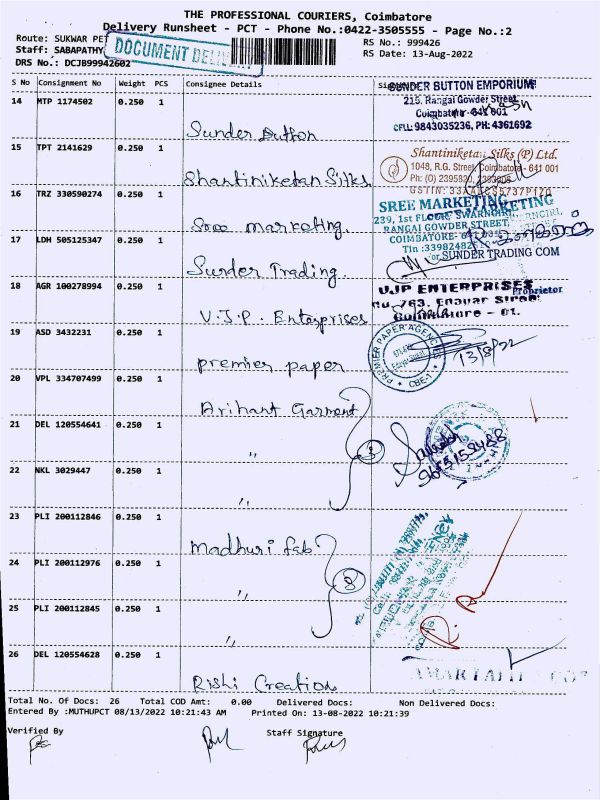 THE PROFESSIONAL COURIERS, Coimbatore
Delivery Runsheet - PCT - Phone No.:0422-3505555 - Page No.:2
Route: SUKWAR PET
RS No.: 999426
Staff: SABAPATHY
DOCUMENT
RS Date: 13-Aug-2022
DRS No.: DCJB99942602
S No Consignment No Weight PCS Consignee Details
14 MTP 1174502 0.250 1 Sunder Button
SUNDER BUTTON EMPORIUM
215, Rangai Gowder Street,
Coimbatore - 641 001
CELL: 9843035236, PH: 4361692
15 TPT 2141629 0.250 1 Shantiniketan Silks
Shantiniketan Silks (P) Ltd.
1048, R.G. Street, Coimbatore - 641 001
16 TRZ 330590274 0.250 1 Sree marketing.
SREE MARKETING
239, 1st FLOOR, SWARNGIRI,
RANGAI GOWDER STREET,
COIMBATORE-
17 LDH 505125347 0.250 1 Sunder Trading
For SUNDER TRADING COM
18 AGR 100278994 0.250 1 V.J.P. Enterprises
VJP ENTERPRISES
Proprietor
19 ASD 3432231 0.250 1 premier paper
PREMIER PAPER AGENC
CBE-1
13/8/22
20 VPL 334707499 0.250 1 Arihant Garment
21 DEL 120554641 0.250 1 "
3
22 NKL 3029447 0.250 1 "
23 PLI 200112846 0.250 1 Madhuri fab
24 PLI 200112976 0.250 1 "
3
25 PLI 200112845 0.250 1 "
26 DEL 120554628 0.250 1 Rishi Creation
Total No. Of Docs: 26 Total COD Amt: 0.00 Delivered Docs: Non Delivered Docs:
Entered By :MUTHUPCT 08/13/2022 10:21:43 AM Printed On: 13-08-2022 10:21:39
Verified By Staff Signature